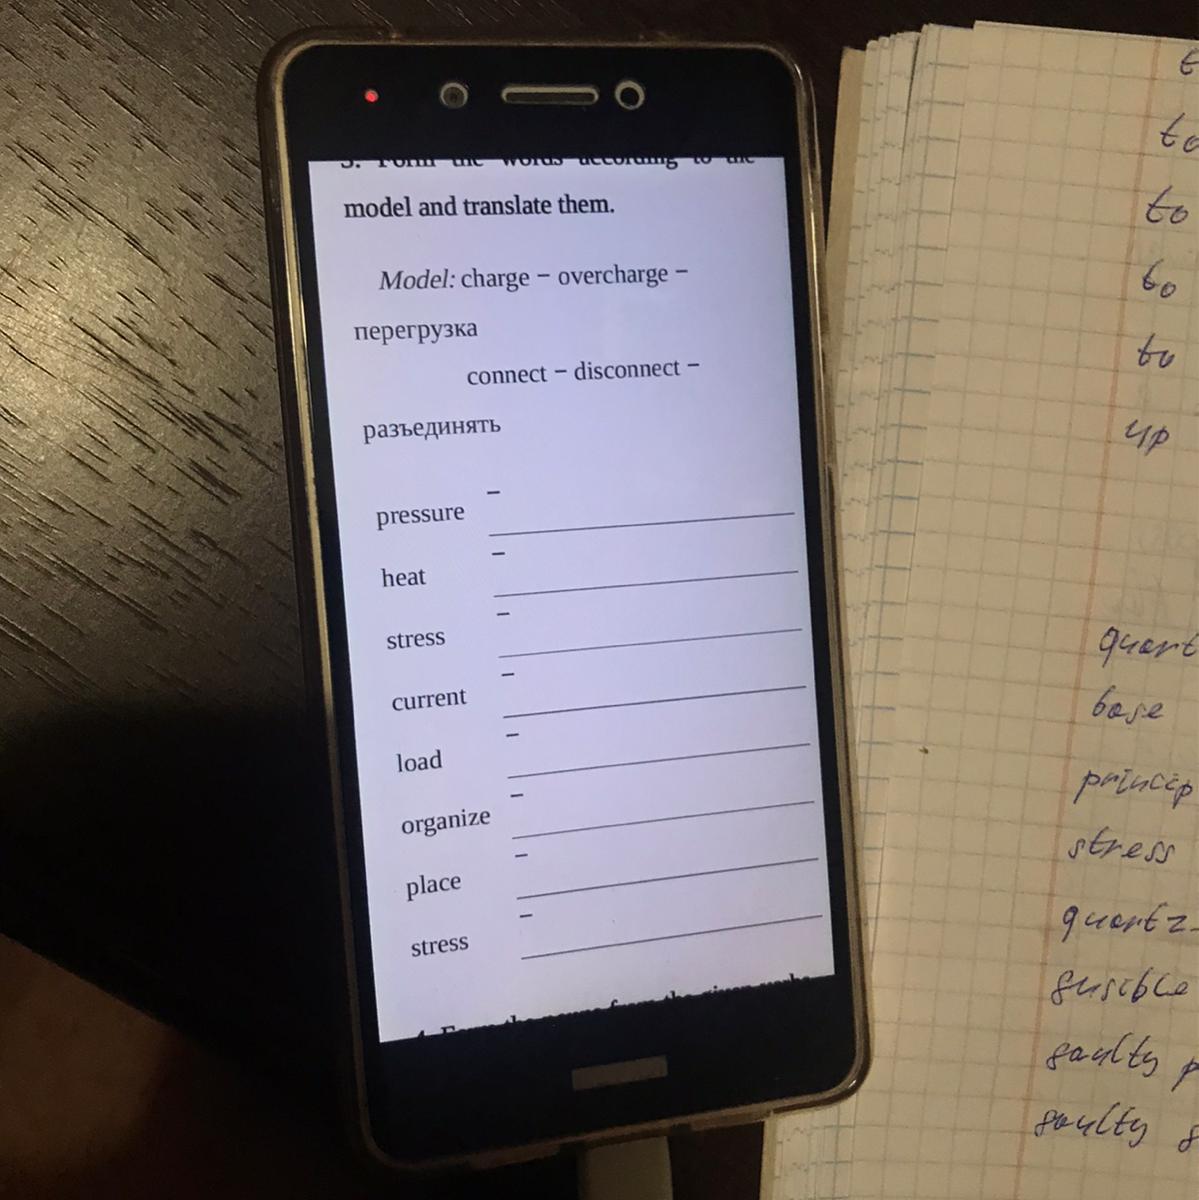 3. Form the words according to the
model and translate them.
Model: charge – overcharge –
перегрузка
connect – disconnect –
разъединять
pressure –
heat –
stress –
current –
load –
organize –
place –
stress –
4. Form the nouns from the given verbs
to
to
to
up
base
stress